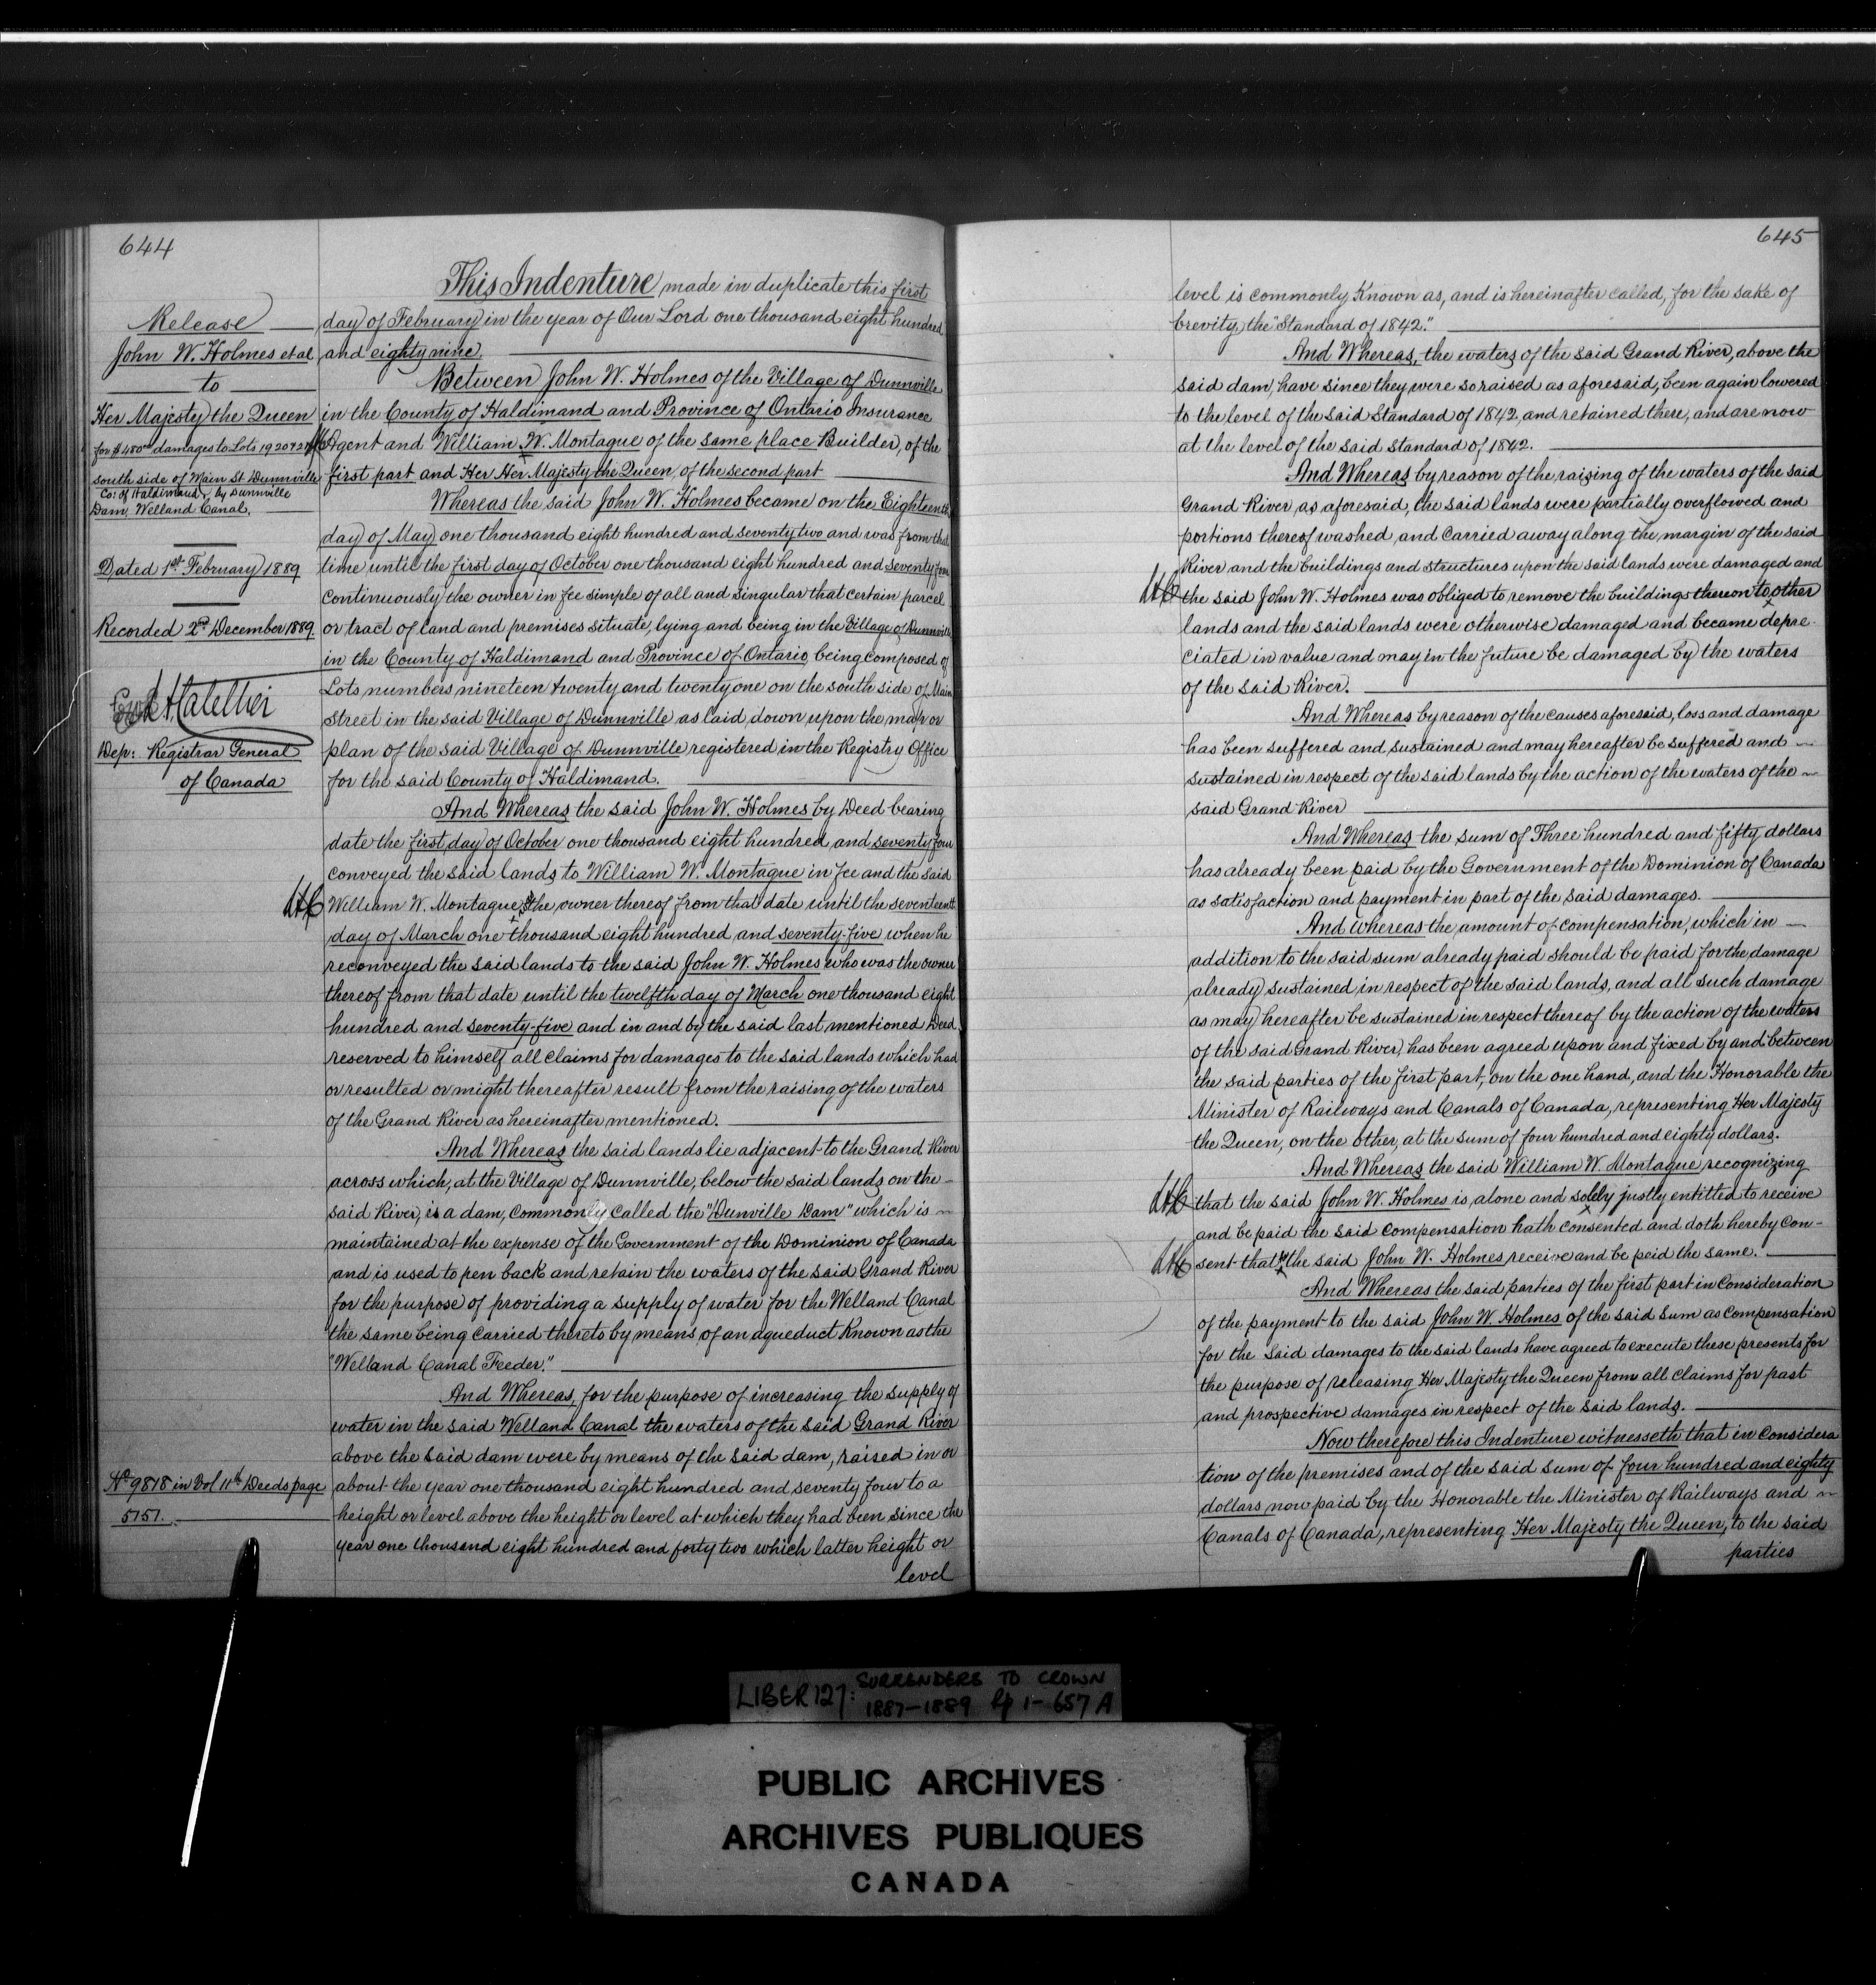 644
Release
John W. Holmes et al
to
Her Majesty the Queen
for $480 00 damages to Lots 19 20 & 21
south side of Main St Dunnville
Co: of Haldimand, by Dunnville
Dam, Welland Canal.
Dated 1st February 1889
Recorded 2nd December 1889.
Dep: Registrar General
of Canada
No 9818 in Vol 11th Deeds page
5151.
This Indenture made in duplicate this first
day of February in the year of Our Lord one thousand eight hundred
and eighty nine.
Between John W. Holmes of the Village of Dunnville
in the County of Haldimand and Province of Ontario Insurance
Agent and William W. Montague of the same place Builder, of the
first part and Her Her Majesty the Queen, of the second part
Whereas the said John W. Holmes became on the Eighteenth
day of May one thousand eight hundred and seventy two and was from that
time until the first day of October one thousand eight hundred and seventy four
continuously the owner in fee simple of all and singular that certain parcel
or tract of land and premises situate, lying and being in the Village of Dunnville
in the County of Haldimand and Province of Ontario, being composed of
Lots numbers nineteen twenty and twenty one on the south side of Main
Street in the said Village of Dunnville as laid down upon the map or
plan of the said Village of Dunnville registered in the Registry Office
for the said County of Haldimand.
And Whereas the said John W. Holmes by Deed bearing
date the first day of October one thousand eight hundred and seventy four
conveyed the said lands to William W. Montague in fee and the said
William W. Montague, the owner thereof from that date until the seventeenth
day of March one thousand eight hundred and seventy-five when he
reconveyed the said lands to the said John W. Holmes who was the owner
thereof from that date until the twelfth day of March one thousand eight
hundred and seventy-five and in and by the said last mentioned Deed
reserved to himself all claims for damages to the said lands which had
or resulted or might thereafter result from the raising of the waters
of the Grand River as hereinafter mentioned.
And Whereas the said lands lie adjacent to the Grand River
across which, at the Village of Dunnville, below the said lands on the
said River, is a dam, commonly called the "Dunville Dam" which is
maintained at the expense of the Government of the Dominion of Canada
and is used to pen back and retain the waters of the said Grand River
for the purpose of providing a supply of water for the Welland Canal
the same being carried thereto by means of an aqueduct Known as the
"Welland Canal Feeder."
And Whereas, for the purpose of increasing the supply of
water in the said Welland Canal the waters of the said Grand River
above the said dam were by means of the said dam, raised in or
about the year one thousand eight hundred and seventy four to a
height or level above the height or level at which they had been since the
year one thousand eight hundred and forty two which latter height or
level
645
level is commonly Known as, and is hereinafter called, for the sake of
brevity, the "Standard of 1842."
And Whereas, the waters of the said Grand River, above the
said dam, have since they were so raised as aforesaid, been again lowered
to the level of the said Standard of 1842, and retained there, and are now
at the level of the said Standard of 1842.
And Whereas by reason of the raising of the waters of the said
Grand River, as aforesaid, the said lands were partially overflowed and
portions thereof washed and carried away along the margin of the said
River and the buildings and structures upon the said lands were damaged and
the said John W. Holmes was obliged to remove the buildings thereon to other
lands and the said lands were otherwise damaged and became depre-
ciated in value and may in the future be damaged by the waters
of the said River.
And Whereas by reason of the causes aforesaid, loss and damage
has been suffered and sustained and may hereafter be suffered and
sustained in respect of the said lands by the action of the waters of the
said Grand River
And Whereas the sum of Three hundred and fifty dollars
has already been paid by the Government of the Dominion of Canada
as satisfaction and payment in part of the said damages.
And Whereas the amount of compensation, which in
addition to the said sum already paid should be paid for the damage
already sustained, in respect of the said lands, and all such damage
as may hereafter be sustained in respect thereof by the action of the waters
of the said Grand River, has been agreed upon and fixed by and between
the said parties of the first part, on the one hand, and the Honorable the
Minister of Railways and Canals of Canada, representing Her Majesty
the Queen, on the other, at the sum of four hundred and eighty dollars.
And Whereas the said William W. Montague, recognizing
that the said John W. Holmes is alone and solely justly entitled to receive
and be paid the said compensation hath consented and doth hereby con-
sent that the said John W. Holmes receive and be paid the same.
And Whereas the said parties of the first part in consideration
of the payment to the said John W. Holmes of the said sum as compensation
for the said damages to the said lands have agreed to execute these presents for
the purpose of releasing Her Majesty the Queen from all claims for past
and prospective damages in respect of the said lands.
Now therefore this Indenture witnesseth that in considera
tion of the premises and of the said sum of four hundred and eighty
dollars now paid by the Honorable the Minister of Railways and
Canals of Canada, representing Her Majesty the Queen, to the said
parties
LIBER 127: SURRENDERS TO CROWN
1887-1889 Pp 1-657 A
PUBLIC ARCHIVES
ARCHIVES PUBLIQUES
CANADA